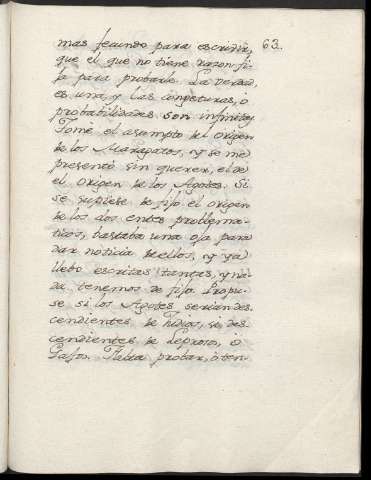 mas fecundo para escribir, 63.
que el que no tiene razon fi-
ja para probarle. La verdad,
es una, y las congeturas, ò
probabilidades son infinitas.
Tomè el asumpto del origen
de los Maragatos, y se me
presentò sin querer, el de
el origen de los Agotes. Si
se supiese de fijo el origen
de los dos entes problema-
ticos, bastaba una oja para
dar noticia de ellos, y ya
llebo escritas tantas, y na-
da tenemos de fijo. Propu-
se si los Agotes serian des-
cendientes de Judios, si des-
cendientes de Leproso, ò
Gafo. Falta probar, ò ten-